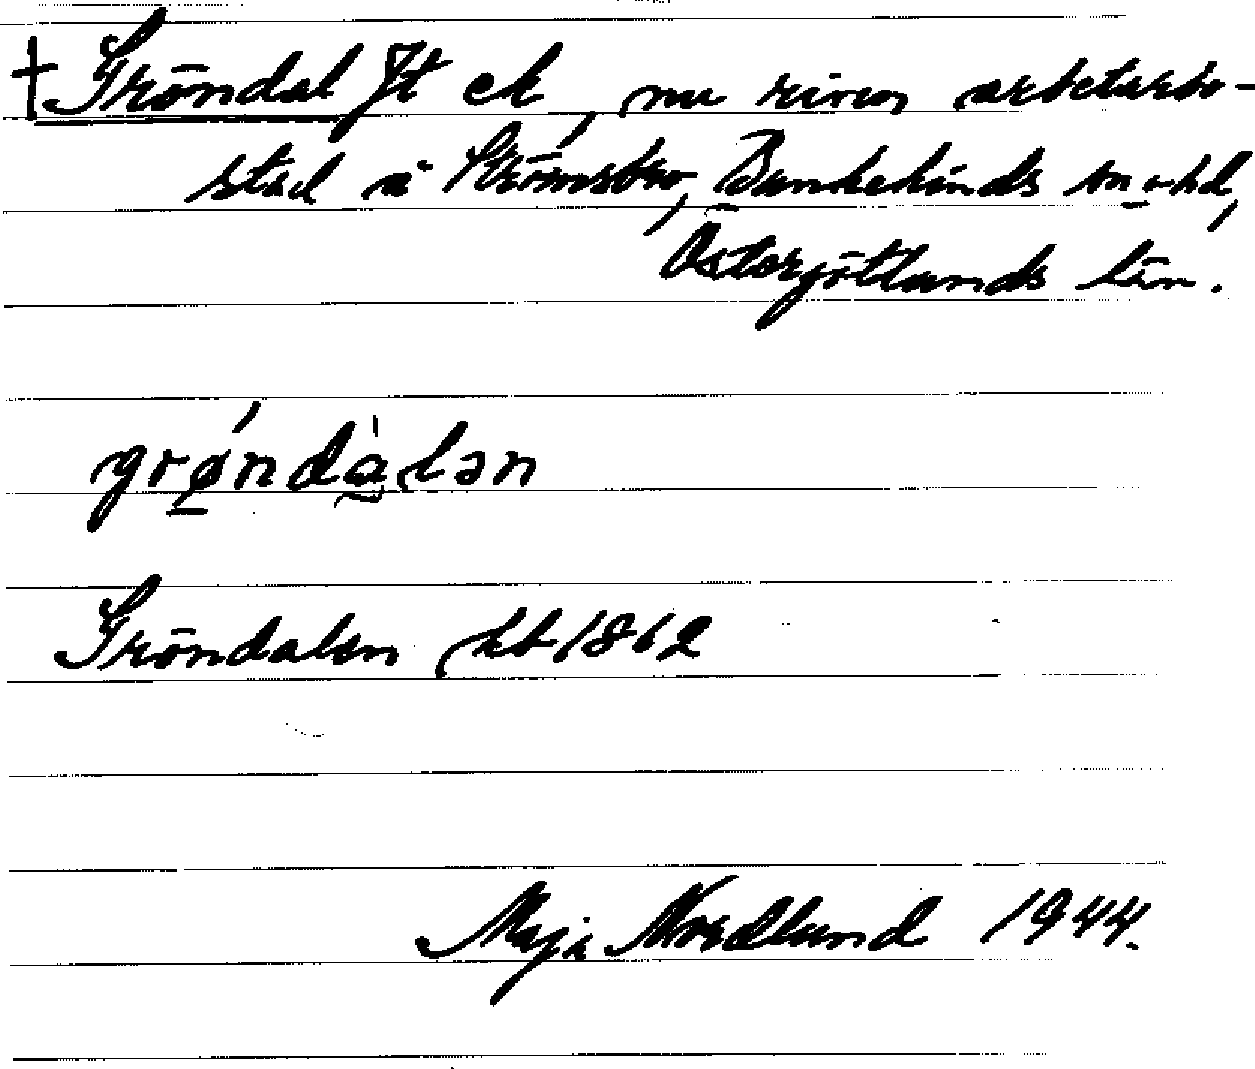 † Gröndal Jt ek, nu riven arbetarbo-
stad i Strömsbro, Bankekinds sn o hd,
Östergötlands län.
grǿndàlən
Gröndalen kb 1862
Maja Nordlund 1944.